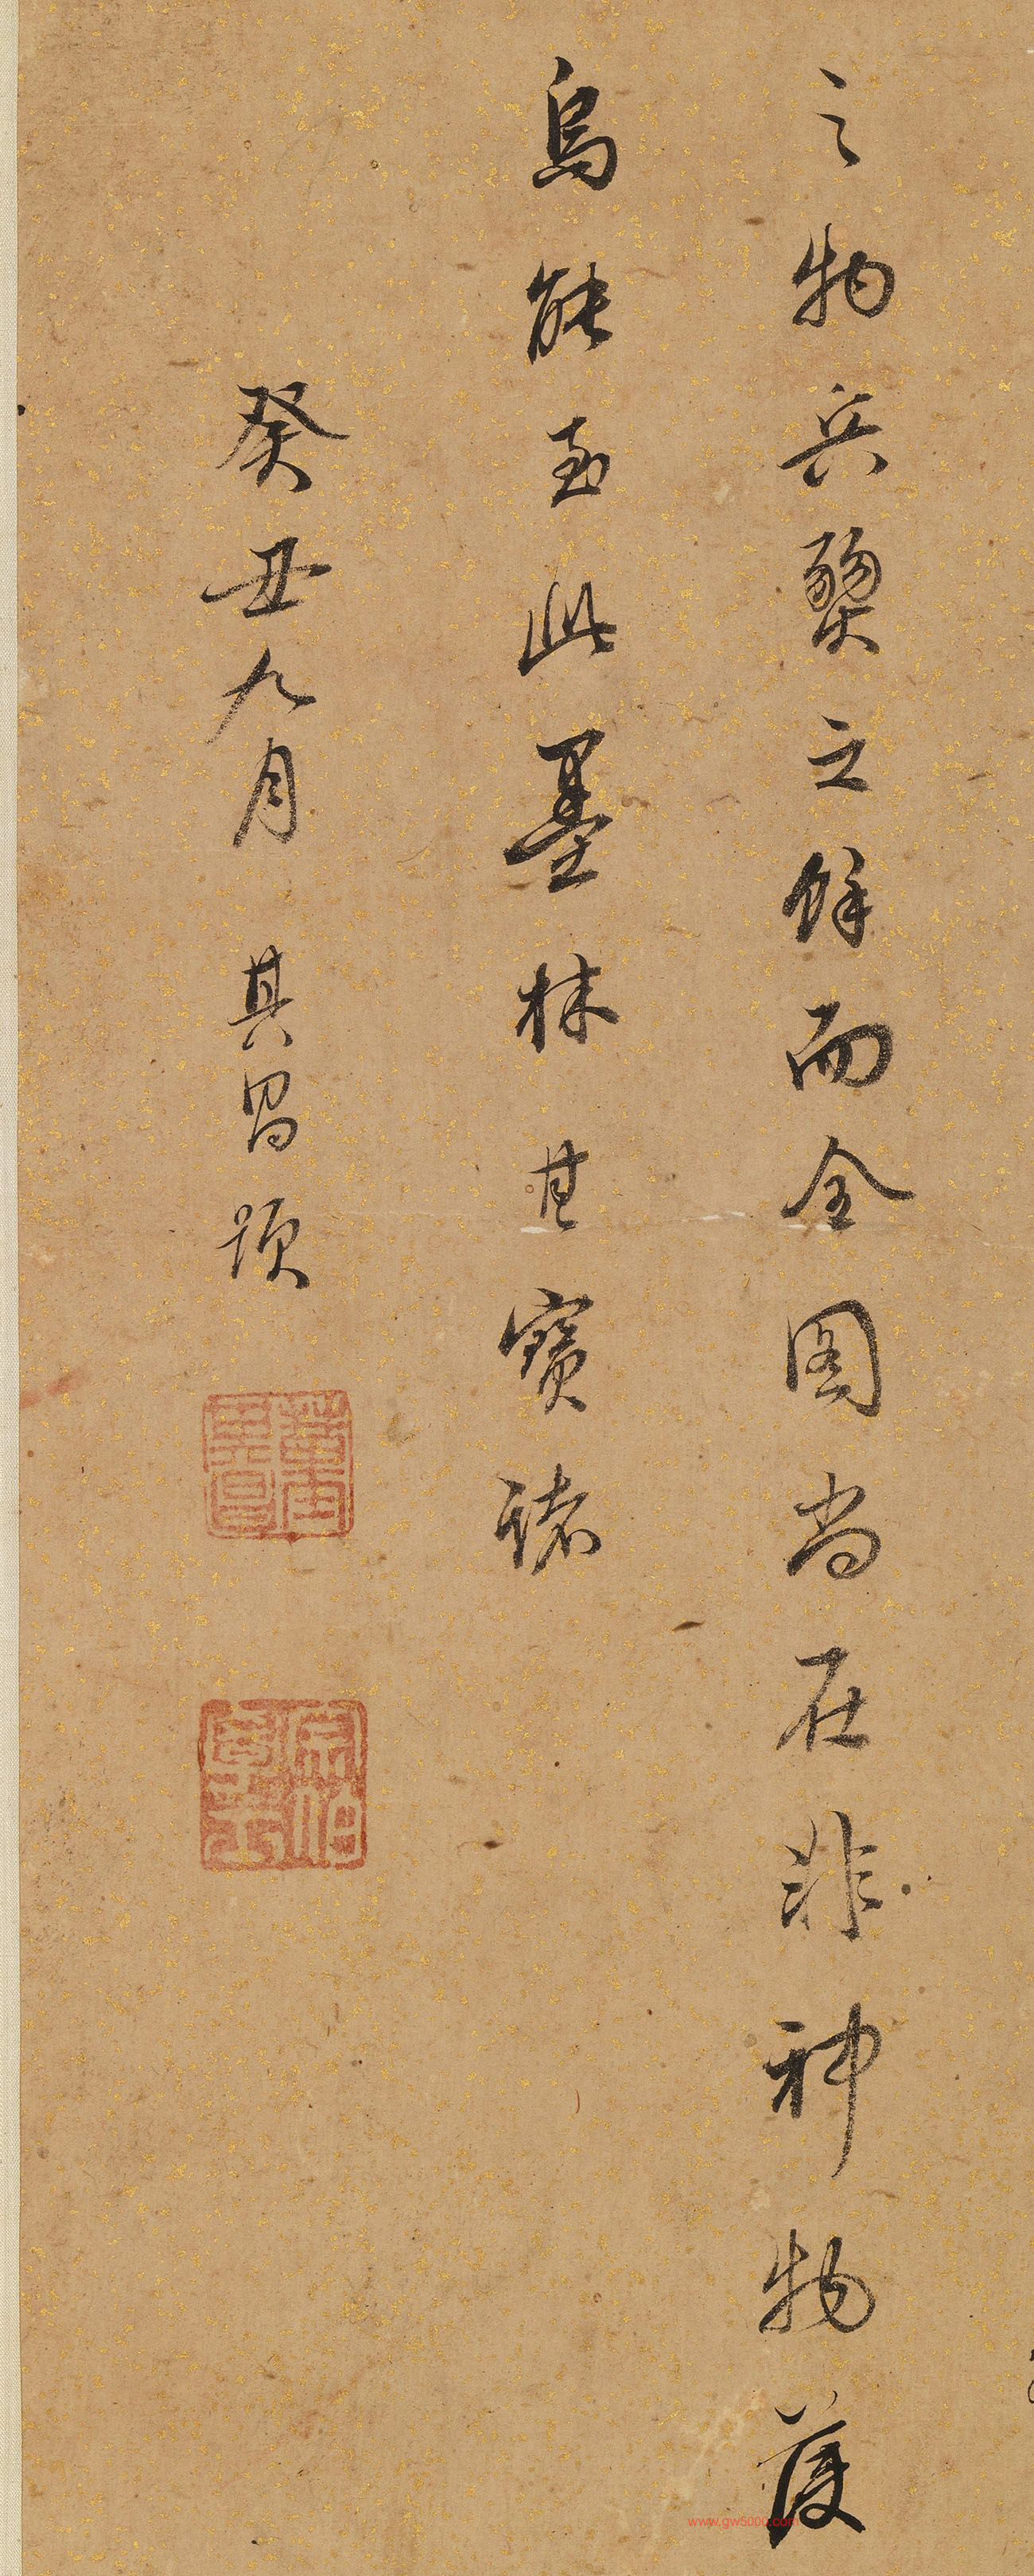 之物兵燹之餘而全圖尚在非神物護
烏能至此墨林其寶諸
癸丑九月 其昌題
董其昌印
宗伯學士
www.gw5000.com